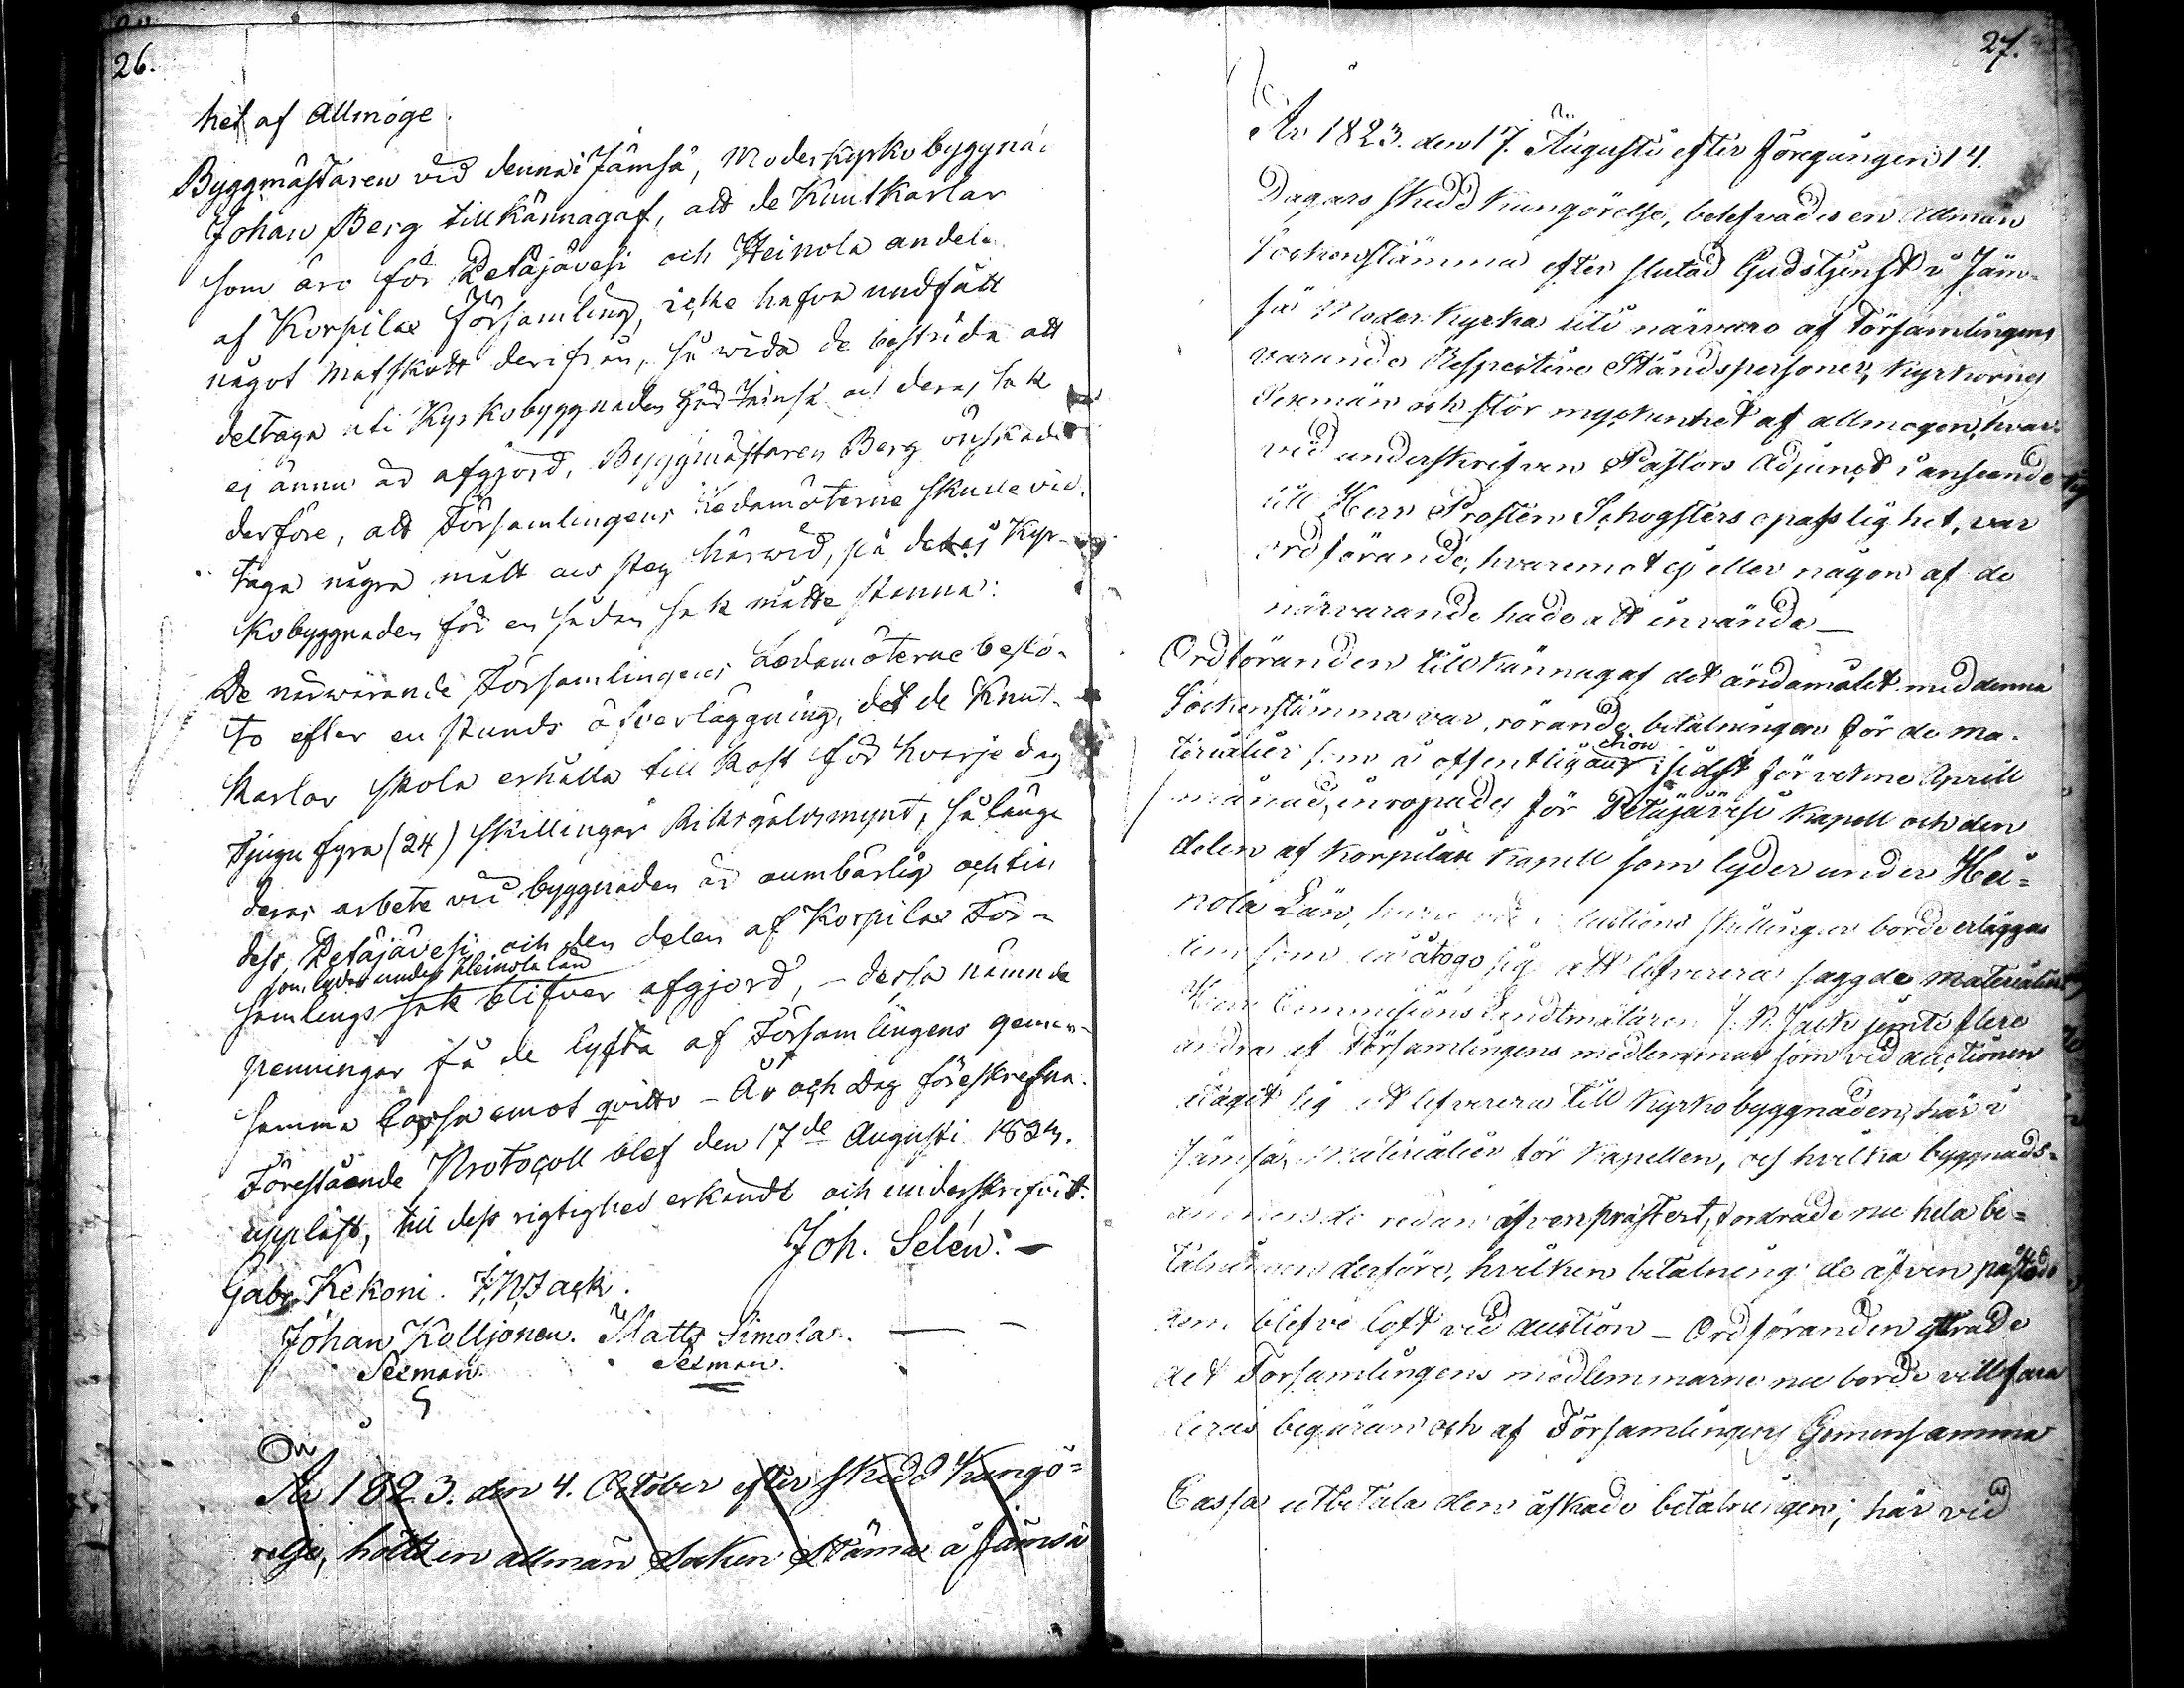 26.
het af Allmoge.
Byggmästaren vid denna i Jämsä, Moder Kyrko byggnad
Johan Berg tillkännagaf, att de Knutkarlar
som äro för Petäjävesi och Heinola andelen
af Korpilax Församling, icke hafva undfått
något matskott derifrån, så wida de bestrida att
deltaga uti Kyrkobyggnaden Jämsä och deras sak
ej ännu är afgjord, Byggmästaren Berg önskade
derföre, att Församlingens Ledamöterne skulle vid-
taga några mått och steg härwid, på det ej Kyr-
kobyggnaden för en sådan sak måtte stanna:
De närwarande Församlingens Ledamöterne beslö-
to efter en stunds öfverläggning, det de Knut-
karlar skola erhålla till kost för hvarje dag
Tjugu fyra (24) skillingar Riksgäldsmynt, så länge
deras arbete vid byggnaden är oumbärlig och till
dess Petäjävesi och den delen af Korpilax För-
som lyder under Heinola län
samlings sak blifver afgjord, – dessa nämnde
penningar få de lyfta af Församlingens gemen-
samma Cassa emot qvitto – År och Dag föreskrefna.
Förestående Protocoll blef den 17de Augusti 1823.
uppläst, till dess rigtighet erkändt och underskrifvit.
Joh. Selén: –
Gabr. Kekoni. J.N. Jack.
Johan Kolljonen. Matts Simola.
Sexman. Sexman.
År 1823. den 4. October efter skedd Kungö=
relse, hölts en allmän Socken Stäma i Jämsä
27.
År 1823. den 17. Augusti efter föregången 14.
Dagars skedd kungörelse, beslefvades en allmän
Sockenstämma efter slutad Gudstjenst i Jäm-
sä Moder Kyrka uti närvaro af Församlingens
varande Respective Ståndspersoner, Kyrkovärd,
Sexmän och stor myckenhet af allmogen, hvar-
vid underskrifven Pastors Adjunct i anseende
till Herr Prosten Schogsters opasslighet, var
ordförande, hvaremot ej eller någon af de
närvarande hade att invända –
Ordföranden tillkännagaf det ändamålet med denna
Sockenstämma var, rörande betalningen för de ma-
terialier som å offentlig auction sidst förvekne Aprill
månad, inropades för Petäjävesi Kapell och den
delen af Korpilax Kapell som lyder under Hei=
nola Län, huru auctions skillingen borde erläggas
dem som åtogo sig att lefverera saggde materialier,
Herr Commissions Landtmätaren J. N. Jack jemte flere
andra af Församlingens medlemmar som vid auctionen
åtagit sig att lefverera till Kyrkobyggnaden, här i
Jämsä, Materialier för Kapellen, och hvilka byggnads-
de redan äfven präster­t, fordrade nu hela be=
talningen derföre, hvilken betalning de äfven påstodo
dem blefvo loft vid auction – Ordföranden yttrade
det Församlingens medlemmarne nu borde villfara
deras begäran och af Församlingens Gemensamma
Cassa utbetala den äskade betalningen; här vid